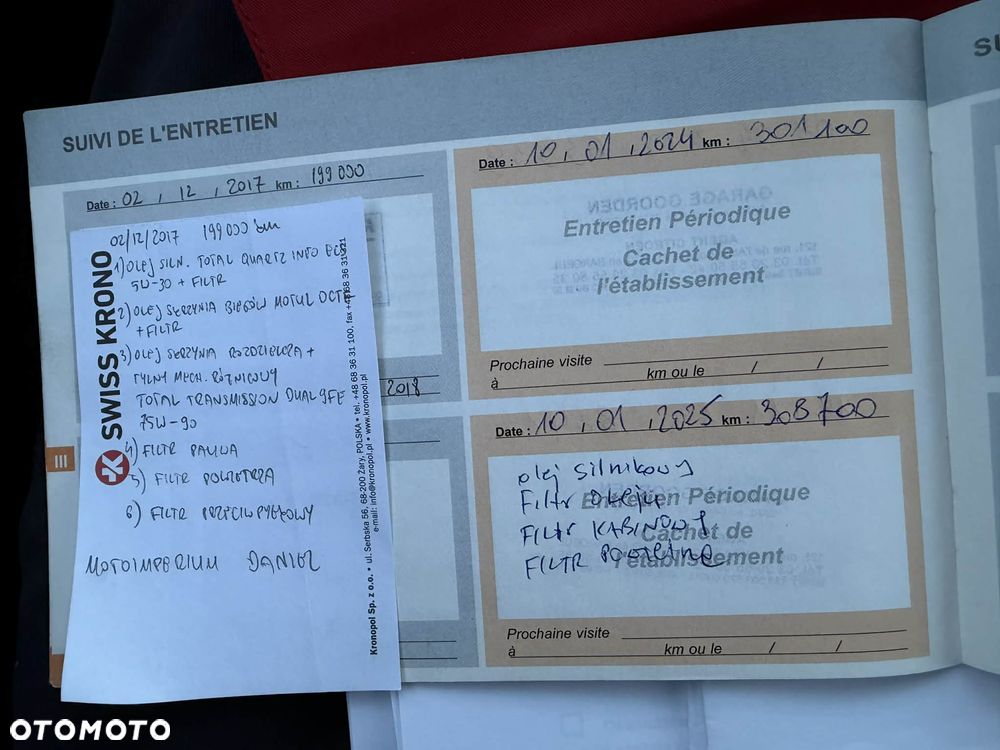 SUIVI DE L'ENTRETIEN
Date : 02 , 12 , 2017 km : 199 000
02/12/2017 199 000 km
1) OLEJ SILN. TOTAL QUARTZ INEO ECS
5W-30 + FILTR
2) OLEJ SKRZYNIA BIEGÓW MOTUL DCTF
+ FILTR
3) OLEJ SKRZYNIA ROZDZIELCZA +
TYLNY MECH. RÓŻNICOWY
TOTAL TRANSMISSION DUAL 9 FE
75W-90
4) FILTR PALIWA
5) FILTR POWIETRZA
6) FILTR PRZECIWPYŁKOWY
MOTOIMPERIUM DANIEL
SWISS KRONO
Kronopol Sp. z o.o. • ul. Serbska 56, 68-200 Żary, POLSKA • tel. +48 68 36 31 100, fax +48 68 36 31 321
e-mail: info@kronopol.pl • www.kronopol.pl
2018
III
Date : 10 , 01 , 2024 km : 301 100
GARAGE GOORDEN
AGENT CITROEN
Entretien Périodique
Cachet de
l'établissement
Prochaine visite
à km ou le / /
Date : 10 , 01 , 2025 km : 308700
olej silnikowy
Filtr Oleju
Filtr KABINOWY
FILTR POWIETRZA
Entretien Périodique
Cachet de
l'établissement
Prochaine visite
à km ou le / /
SU
OTOMOTO